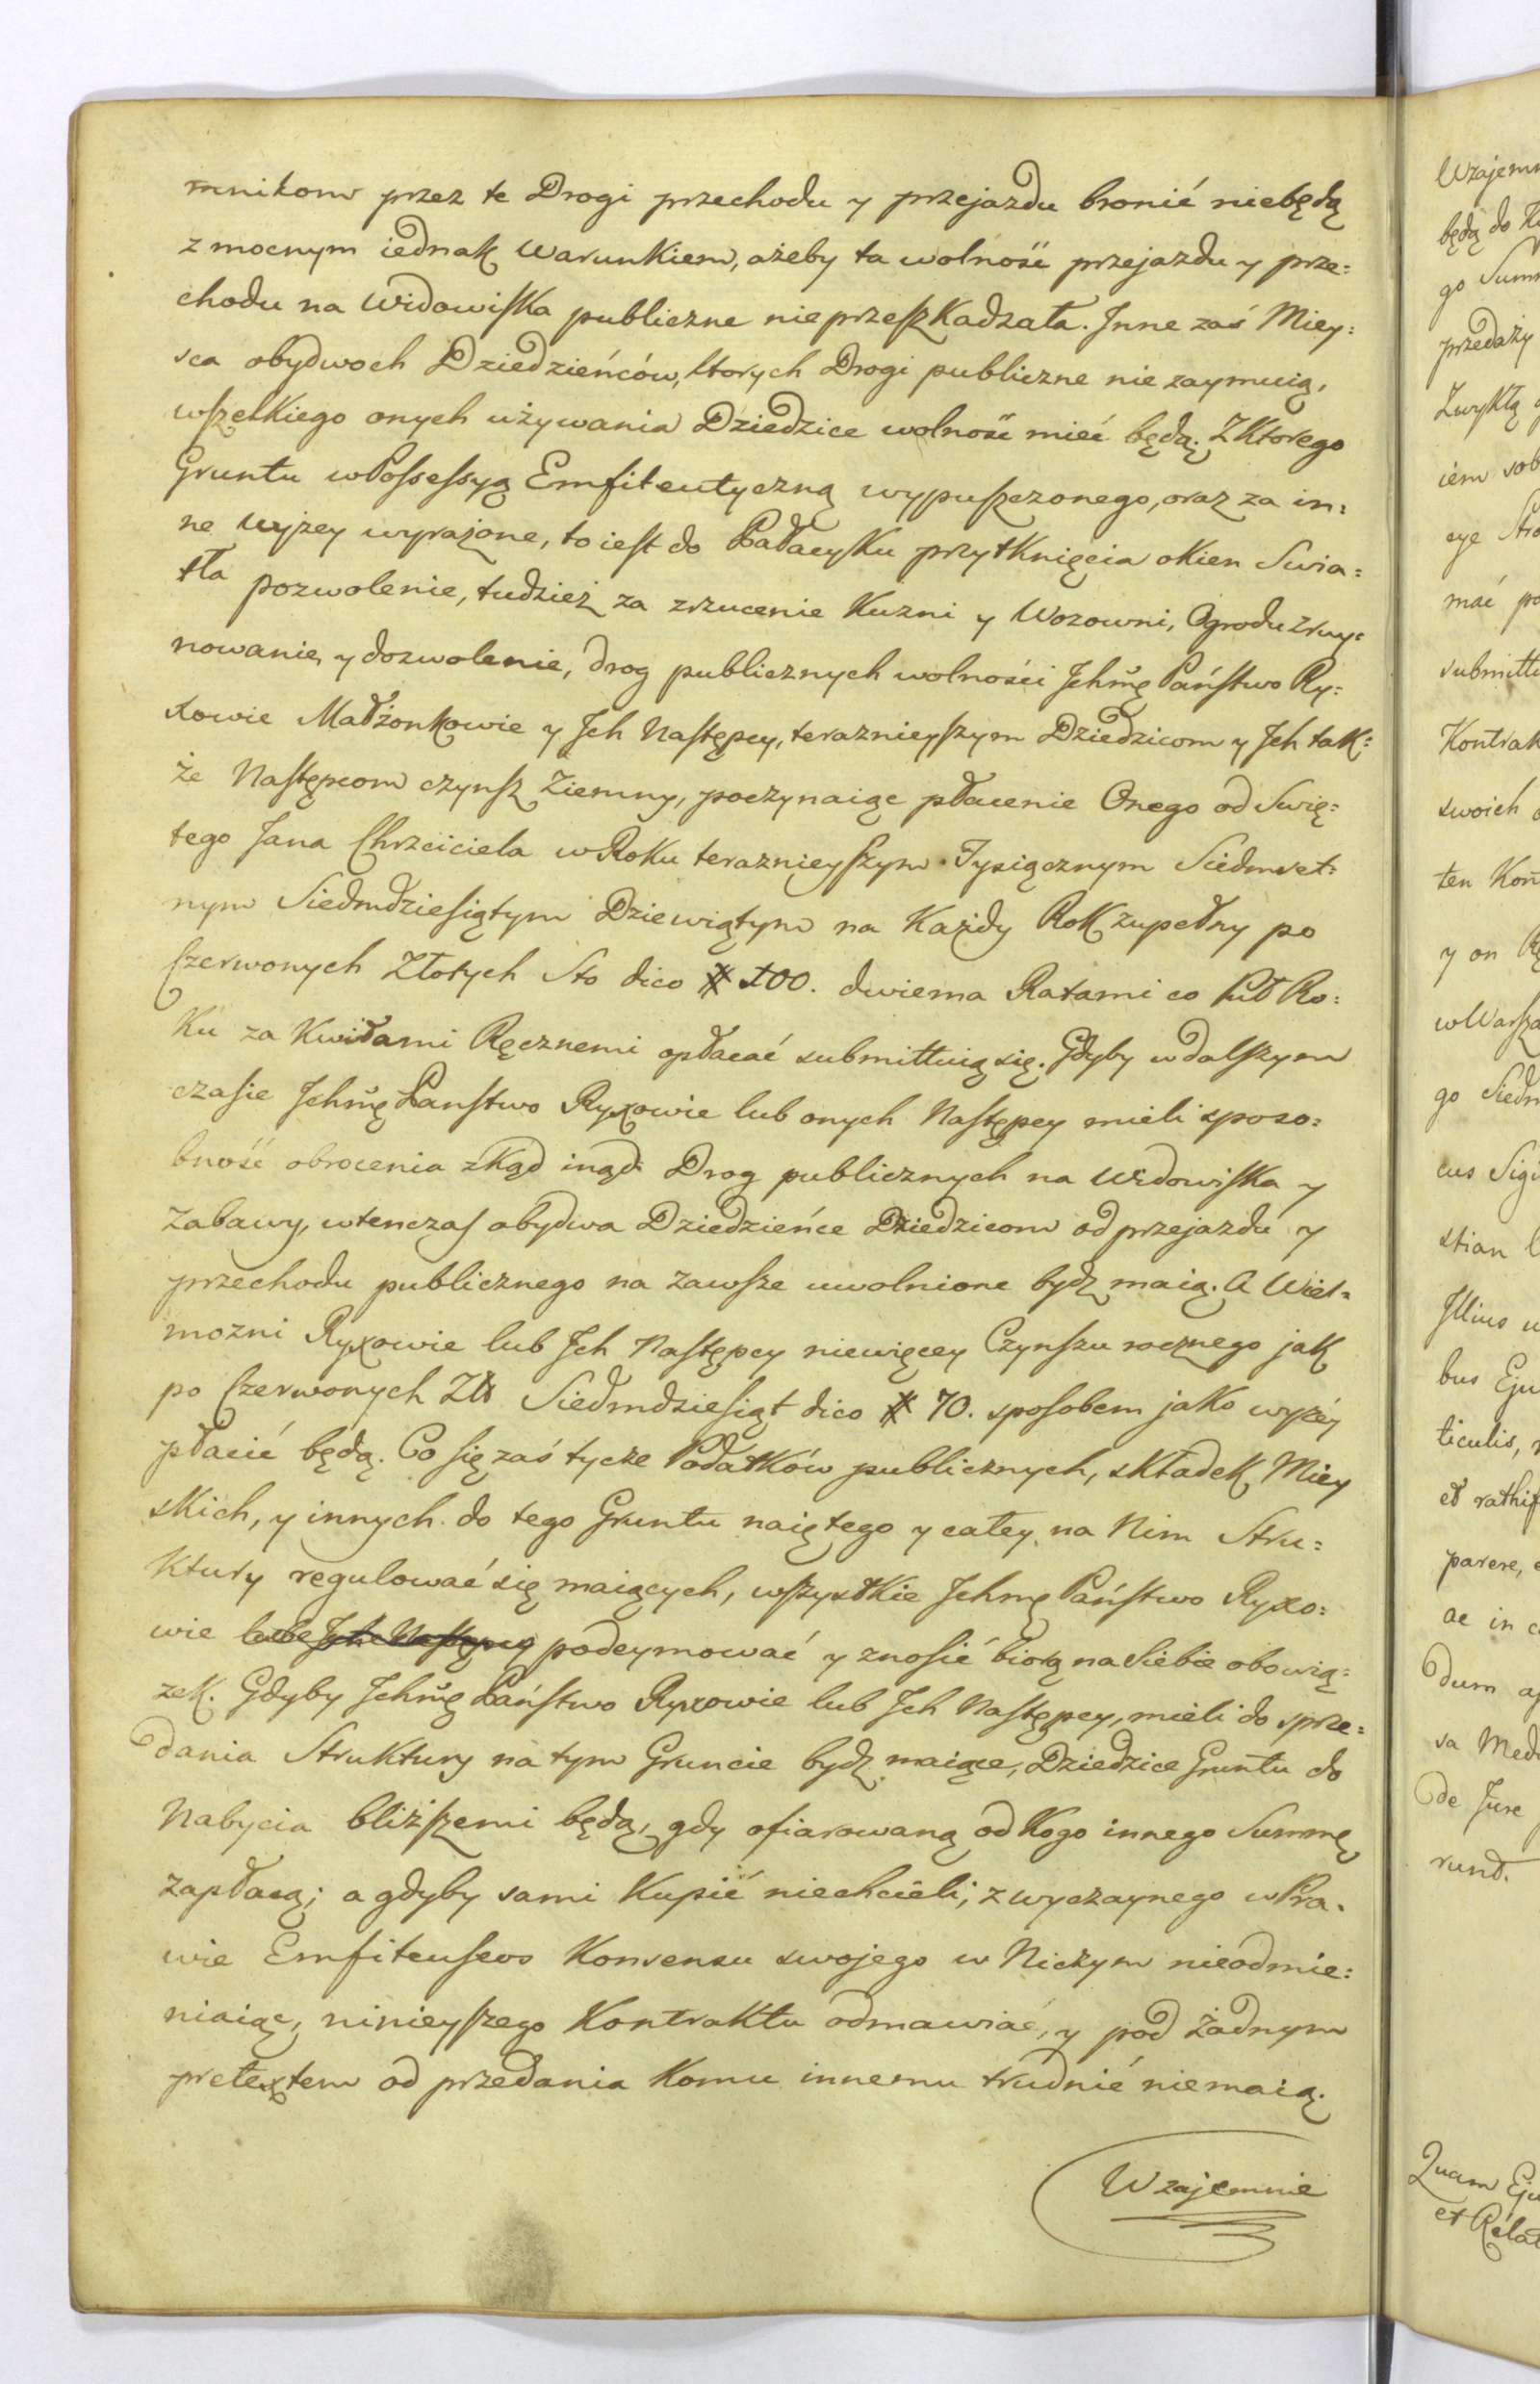 mnikom przez te Drogi przechodu y przejazdu bronić niebędą
z mocnym iednak Warunkiem, ażeby ta wolność przejazdu y prze=
chodu na Widowiska publiczne nieprzeszkadzała. Inne zaś Miey=
sca obydwoch Dziedzieńców, ktorych Drogi publiczne nie zaymuią,
wszelkiego onych używania Dziedzice wolność mieć będą. Z Ktorego
Gruntu w Possessyą Emfiteutyczną wypuszczonego, oraz za in=
ne wyżey wyrażone, to iest do Pałacysku przytknięcia okien Swia=
tła pozwolenie, tudzież za zrzucenie Kuzni y Wozowni, Ogrodu zruy=
nowanie, y dozwolenie, drog publicznych wolności Jchmę Państwo Ry=
xowie Małżonkowie y Jch Następcy, teraznieyszym Dziedzicom y Jch tak=
że Następcom czynsz Ziemny, poczynaiąc płacenie Onego od Swię=
tego Jana Chrzciciela w Roku teraznieyszym Tysiącznym Siedmset=
nym Siedmdziesiątym Dziewiątym na Każdy Rok zupełny po
Czerwonych Złotych Sto dico # 100. dwiema Ratami co Puł Ro=
ku za Kwitami Ręcznemi opłacać submittuią się. Gdyby w dalszym
czasie Jchmę Panstwo Ryxowie lub onych Następcy mieli sposo=
bność obrocenia zkąd inąd Drog publicznych na Widowiska y
Zabawy, wtenczas obydwa Dziedzieńce Dziedzicom od przejazdu y
przechodu publicznego na zawsze uwolnione bydz maią. A Wiel=
mozni Ryxowie lub Jch Następcy niewięcey Czynszu rocznego jak
po Czerwonych Zł Siedmdziesiąt dico # 70. sposobem jako wyżéy
płacić będą. Co się zaś tycze Podatków publicznych, składek Miey
skich, y innych do tego Gruntu naiętego y całey na Nim Stru=
ktury regulować się maiących, wszystkie Jchmę Państwo Ryxo=
wie lub Jch Następcy podeymować y znosić biorą na Siebie obowią=
zek. Gdyby Jchmę Państwo Ryxowie lub Jch Następcy, mieli do sprze=
dania Struktury na tym Gruncie bydz maiące, Dziedzice Gruntu do
Nabycia bliższemi będą, gdy ofiarowaną od Kogo innego Summę
zapłacą; a gdyby sami Kupić niechcieli, zwyczaynego w Pra=
wie Emfiteuseos Konsensu swojego w Niczym nieodmie=
niaiąc, ninieyszego Kontraktu odmawiać, y pod żadnym
pretextem od przedania Komu innemu trudnić niemaią.
Wzajemnie
Wzajemn
będą do
go Summ
przedaży
Zwykłą
iem sob
cye Stro
mać po
submittu
Kontrak
swoich
ten Kon
y on
w Warsza
go Siedm
cus Sigi
stian
Illius
bus Eju
ticulis,
et rathif
parere,
ac in
dum
sa Medi
de Jure
runt.
Quam Eju
et Relat